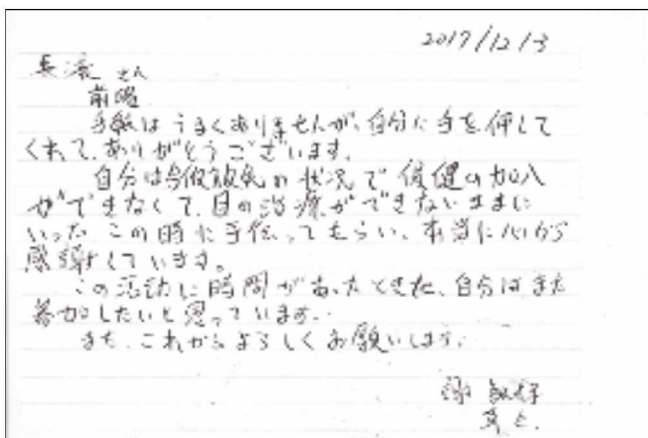 2017/12/3
長濱 さん
前略
手紙はうまくありませんが、自分に手を伸して
くれて、ありがとうございます。
自分は今仮放免の状況で保健の加入
ができなくて、目の治療ができないままに
いった この時に手伝ってもらい、本当に心から
感謝しています。
この活動に時間があったときた、自分はまた
参加したいと思っています。
また、これからよろしくお願いします。
謝